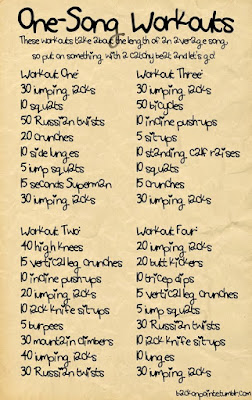 One-Song Workouts
These workouts take about the length of an average song,
so put on something with a catchy beat and let's go!
Workout One:
30 jumping jacks
10 squats
50 Russian twists
20 crunches
10 side lunges
5 jump squats
15 seconds Superman
30 jumping jacks
Workout Three:
30 jumping jacks
50 bicycles
10 incline push-ups
5 sit ups
10 standing calf raises
10 squats
15 crunches
30 jumping jacks
Workout Two:
40 high knees
15 vertical leg crunches
10 incline push-ups
20 jumping jacks
10 jack knife sit-ups
5 burpees
30 mountain climbers
40 jumping jacks
30 Russian twists
Workout Four:
20 jumping jacks
20 butt kickers
10 tricep dips
15 vertical leg crunches
5 jump squats
30 Russian twists
10 jack knife sit-ups
10 lunges
30 jumping jacks
backonpointe.tumblr.com